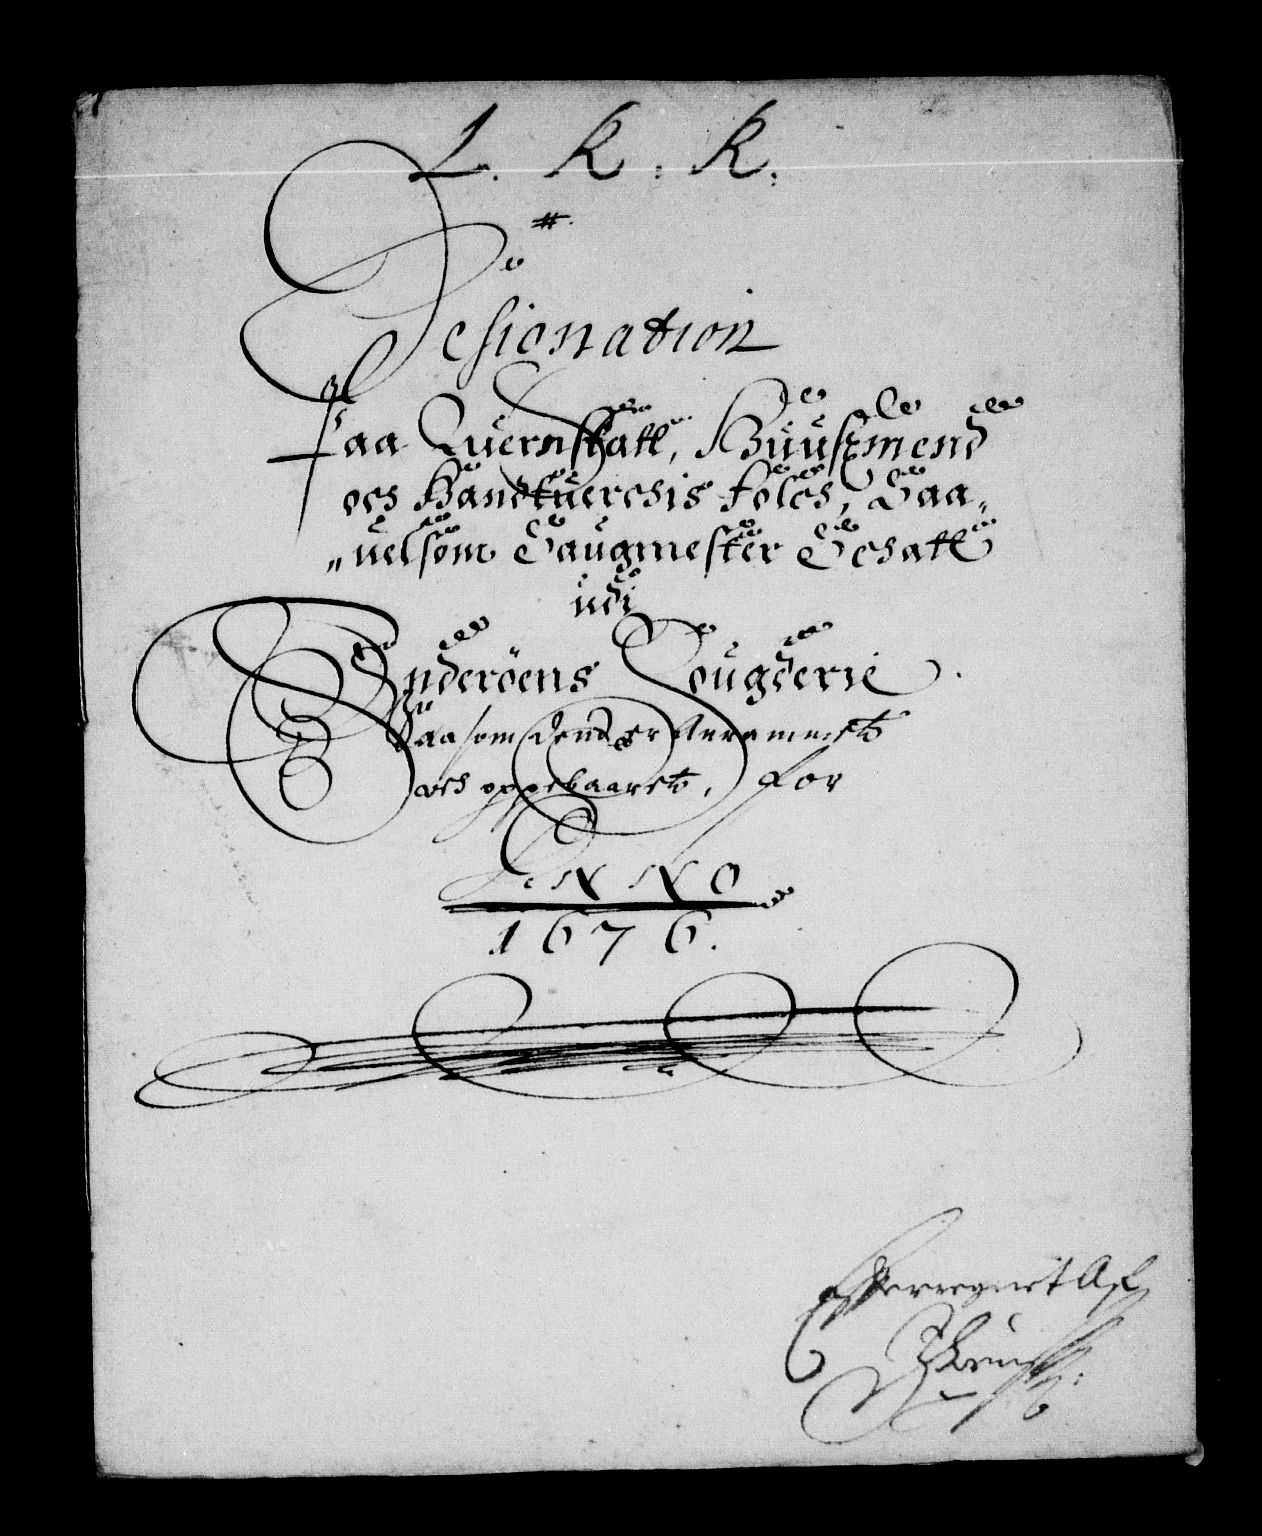 L. K. K.
Designation
Paa Quernskatt, Huusmend
och Handtuerchis folch, Saa„
„uelsom Saugmester Schatt
udi
Inderöens Fougderie.
Saasom dend er Annammet
och oppebaaret, for
ANNO
1676.